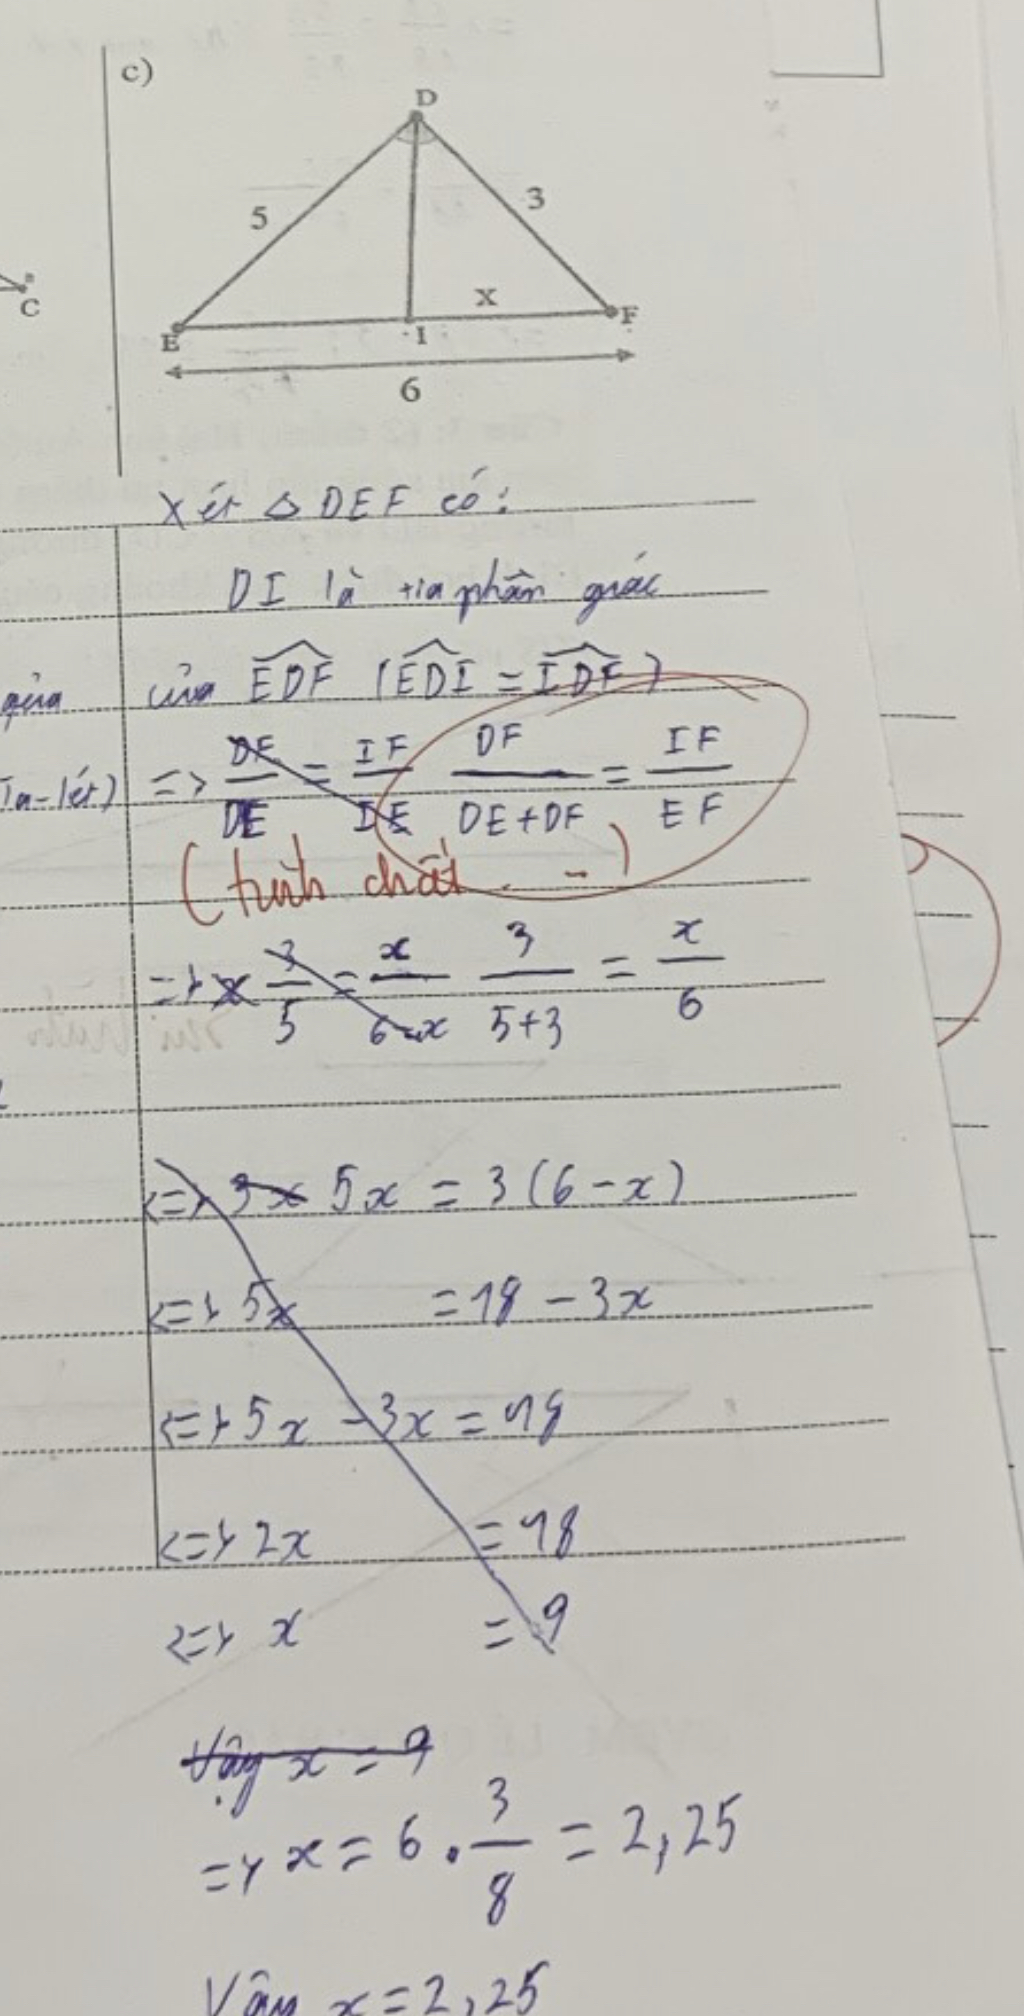 c)
D
5
3
x
C
E
I
F
6
Xét △ DEF có:
DI là tia phân giác
của EDF (EDI = IDF)
=> DF/DE = IF/IE DF/DE+DF = IF/EF
Ta-lét)
(tính chất . . -)
=> x 3/5 = x/6-x 3/5+3 = x/6
<=> 3x 5x = 3(6-x)
<=> 5x = 18 - 3x
<=> 5x - 3x = 18
<=> 2x = 18
<=> x = 9
Vậy x = 9
=> x = 6 . 3/8 = 2,25
Vậy x = 2,25